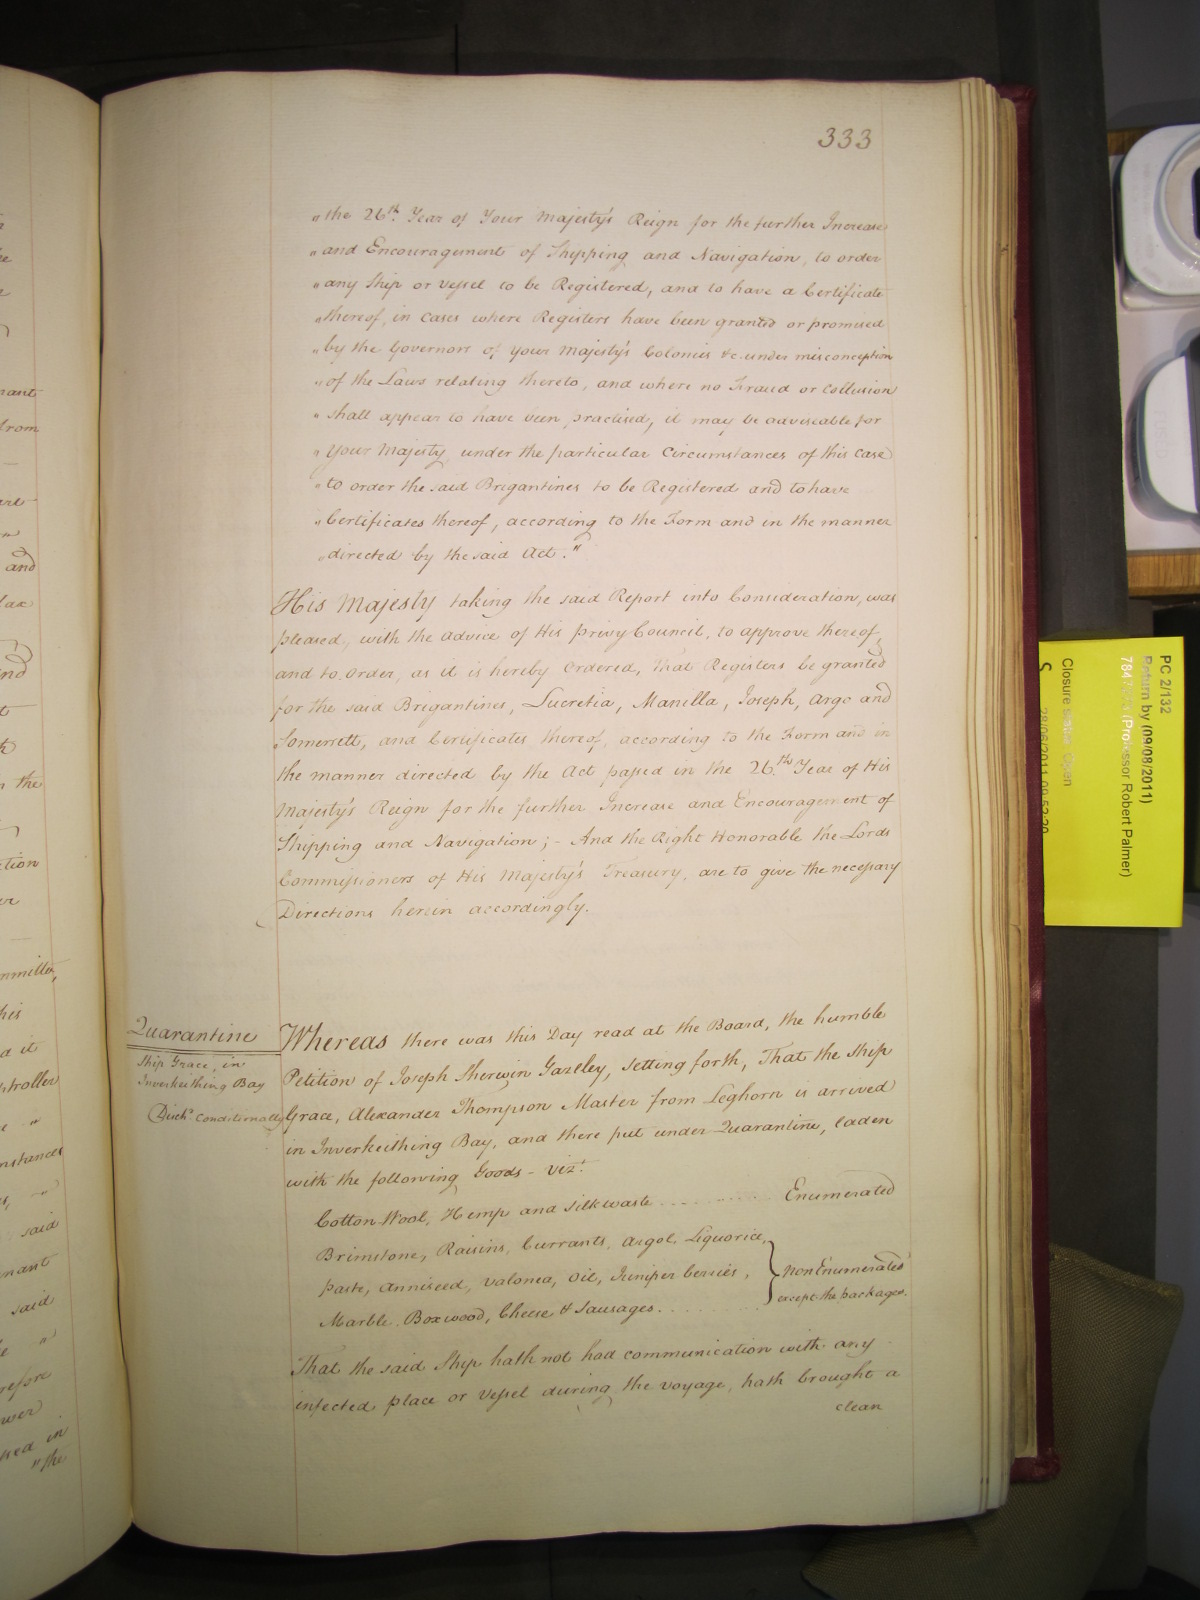 333
"the 26th. Year of Your Majesty's Reign for the further Increase
"and Encouragement of Shipping and Navigation, to order
"any Ship or Vessel to be Registered, and to have a Certificate
"thereof, in Cases where Registers have been granted or promised
"by the Governors of Your Majesty's Colonies &c. under misconception
"of the Laws relating thereto, and where no Fraud or Collusion
"shall appear to have been practised, it may be adviseable for
"Your Majesty, under the particular Circumstances of this Case
"to order the said Brigantines to be Registered and to have
"Certificates thereof, according to the Form and in the manner
"directed by the said Act."
His Majesty taking the said Report into Consideration, was
pleased, with the advice of His Privy Council, to approve thereof,
and to Order, as it is hereby Ordered, that Registers be granted
for the said Brigantines, Lucretia, Manilla, Joseph, Argo and
Somersett, and Certificates thereof, according to the Form and in
the manner directed by the Act passed in the 26th. Year of His
Majesty's Reign for the further Increase and Encouragement of
Shipping and Navigation; - And the Right Honorable the Lords
Commissioners of His Majesty's Treasury, are to give the necessary
Directions herein accordingly.
Quarantine
Ship Grace, in
Inverkeithing Bay
Disch'd. Conditionally
Whereas there was this Day read at the Board, the humble
Petition of Joseph Sherwin Gazeley, setting forth, That the Ship
Grace, Alexander Thompson Master from Leghorn is arrived
in Inverkeithing Bay, and there put under Quarantine, laden
with the following Goods - vizt.
Cotton Wool, Hemp and Silkwaste ........ Enumerated
Brimstone, Raisins, Currants, Argol, Liquorice,
paste, Anniseed, Valonea, Oil, Juniper berries, } Non Enumerated
Marble, Boxwood, Cheese & Sausages..... except the packages.
That the said Ship hath not had communication with any
infected place or Vessel during the voyage, hath brought a
clean
PC 2/132
Return by (09/08/2011)
(Professor Robert Palmer)
Closure status: Open
S
28/06/2011 09:52:20